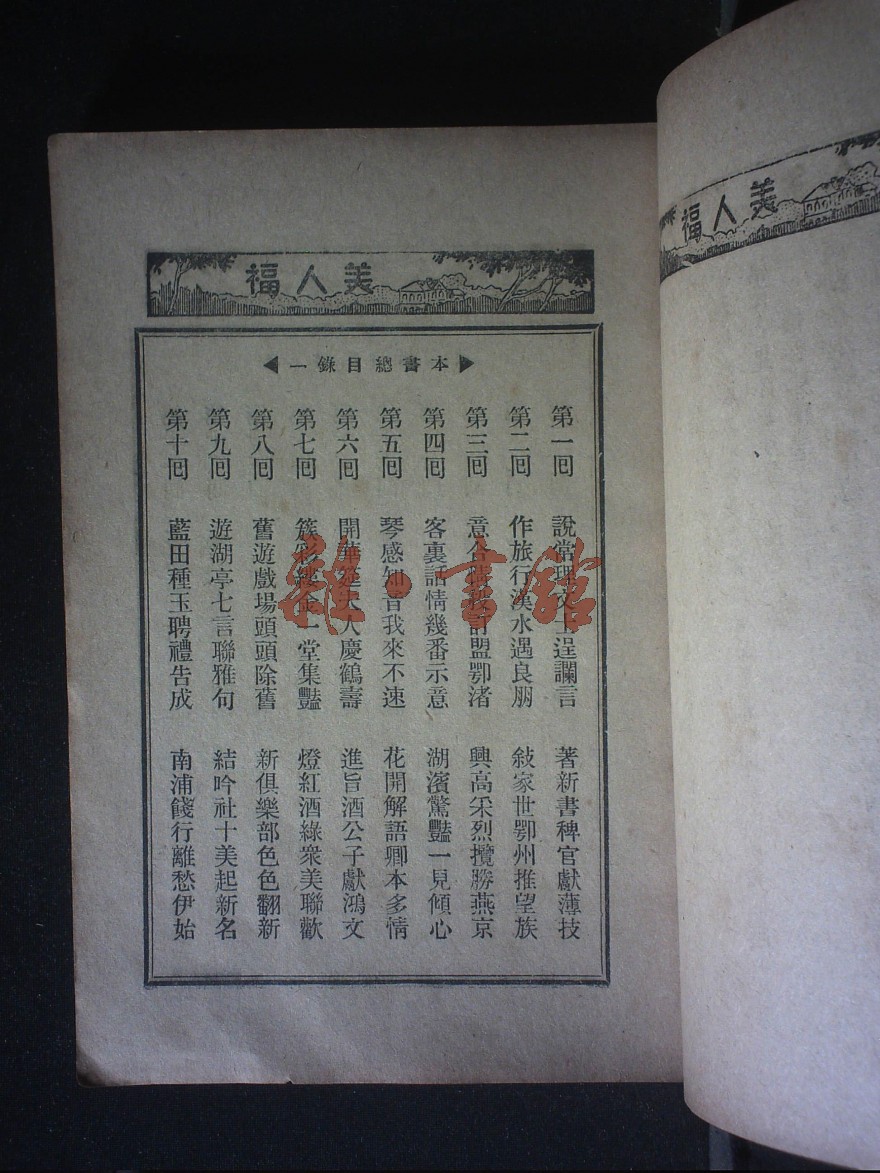 美人福
本書總目錄一
第一回 說常理文士逞讕言 著新書稗官獻薄技
第二回 作旅行漢水遇良朋 敍家世鄂州推望族
第三回 意合情投訂盟鄂渚 興高采烈攬勝燕京
第四回 客裏話情幾番示意 湖濱驚豔一見傾心
第五回 琴感知音我來不速 花開解語卿本多情
第六回 開華筵大人慶鶴壽 進旨酒公子獻鴻文
第七回 簇彩縷金一堂集豔 燈紅酒綠衆美聯歡
第八回 舊遊戲場頭頭除舊 新俱樂部色色翻新
第九回 遊湖亭七言聯雅句 結吟社十美起新名
第十回 藍田種玉聘禮告成 南浦餞行離愁伊始
雜·書館
美人福